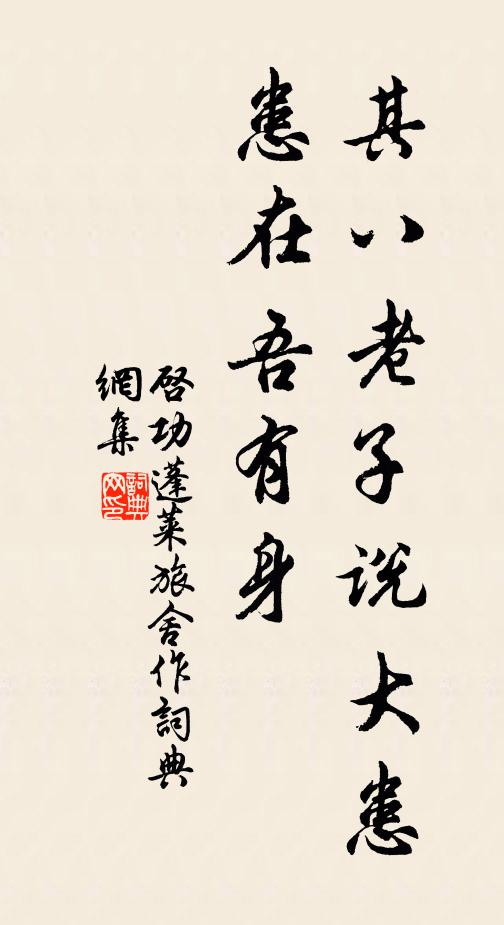 其八老子説大患
患在吾有身
啓功蓬萊旅舍作詞典
網集
詞典
网印